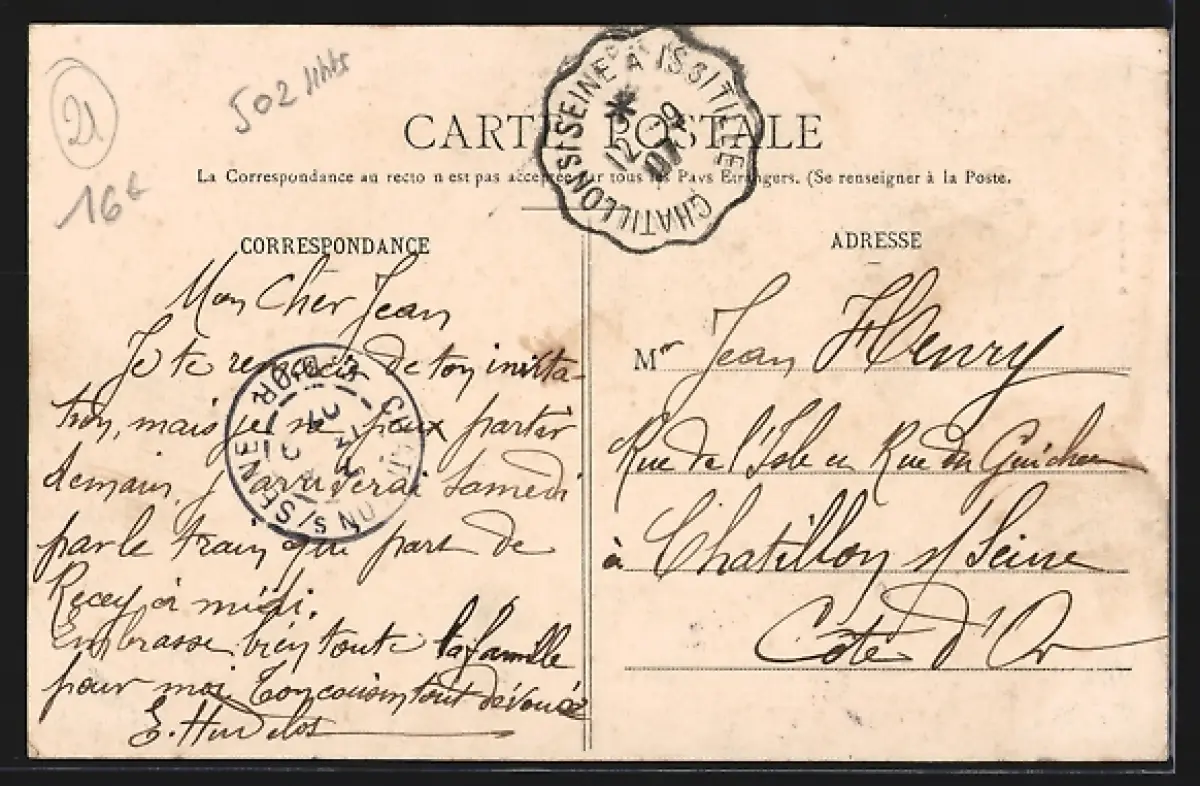 21
502
16€
CHATILLON S/ SEINE À IS S/ TILLE
12 -9
07
CARTE POSTALE
La Correspondance au recto n'est pas acceptée par tous les Pays Etrangers. (Se renseigner à la Poste.
CORRESPONDANCE
Mon Cher Jean
Je te remercie de ton invita-
tion, mais je ne peux partir
demain, j'arriverai Samedi
par le train qui part de
Recey à midi.
Embrasse bien toute la famille
pour moi, Ton cousin tout dévoué
E. Hudelot
CHATILLON S/ SEINE
CÔTE D'OR
07
ADRESSE
Mr Jean Henry
Rue de l'Isle ou Rue du
à Chatillon s/ Seine
Côte d'Or